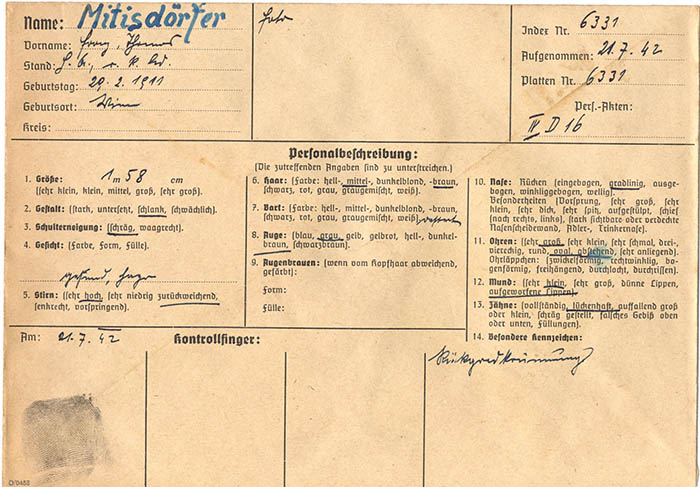 Name: Mitisdörfer
Vorname: Franz, Thomas
Stand:
Geburtstag: 29. 2. 1911
Geburtsort: Wien
Kreis:
Foto
Index Nr. 6331
Aufgenommen: 21. 7. 42
Platten Nr. 6331
Pers.-Akten:
IV D 16
Personalbeschreibung:
(Die zutreffenden Angaben sind zu unterstreichen.)
1. Größe: 1 m 58 cm
(sehr klein, klein, mittel, groß, sehr groß).
2. Gestalt: (stark, untersetzt, schlank, schwächlich).
3. Schulterneigung: (schräg, waagrecht).
4. Gesicht: (Farbe, Form, Fülle).
gesund, hager
5. Stirn: (sehr hoch, sehr niedrig zurückweichend,
senkrecht, vorspringend).
6. Haar: (Farbe: hell-, mittel-, dunkelblond, -braun,
schwarz, rot, grau, graugemischt, weiß).
7. Bart: (Farbe: hell-, mittel-, dunkelblond, -braun,
schwarz, rot, grau, graugemischt, weiß). rasiert
8. Auge: (blau, grau, gelb, gelbrot, hell-, dunkel-
braun, schwarzbraun).
9. Augenbrauen: (wenn vom Kopfhaar abweichend,
gefärbt):
Form:
Fülle:
10. Nase: Rücken (eingebogen, gradlinig, ausge-
bogen, winkliggebogen, wellig).
Besonderheiten (Vorsprung, sehr groß, sehr
klein, sehr dick, sehr spitz, aufgestülpt, schief
(nach rechts, links), stark sichtbare oder verdeckte
Nasenscheidewand, Adler-, Trinkernase).
11. Ohren: (sehr groß, sehr klein, sehr schmal, drei-,
viereckig, rund, oval, abstehend, sehr anliegend).
Ohrläppchen: (zwickelförmig, rechtwinklig, bo-
genförmig, freihängend, durchlocht, durchrissen).
12. Mund: (sehr klein, sehr groß, dünne Lippen,
aufgeworfene Lippen).
13. Zähne: (vollständig, lückenhaft, auffallend groß
oder klein, schräg gestellt, falsches Gebiß oben
oder unten, Füllungen).
14. Besondere Kennzeichen:
Rückgradkrümmung
Am: 21. 7. 42
Kontrollfinger:
D/0488